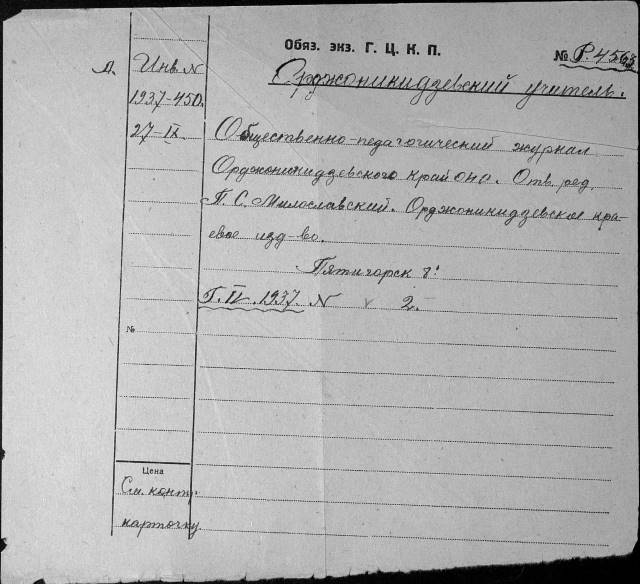 Обяз. экз. Г. Ц. К. П.
№ Р.4563
А. Инв. N
1937-450.
27-IX.
Орджоникидзевский учитель.
Общественно-педагогический журнал
Орджоникидзевского край ОНО. Отв. ред.
П. С. Милославский. Орджоникидзевское кра-
евое изд-во.
Пятигорск 8°
Г. IV. 1937. N 2.
№
Цена
См. конт.
карточку.